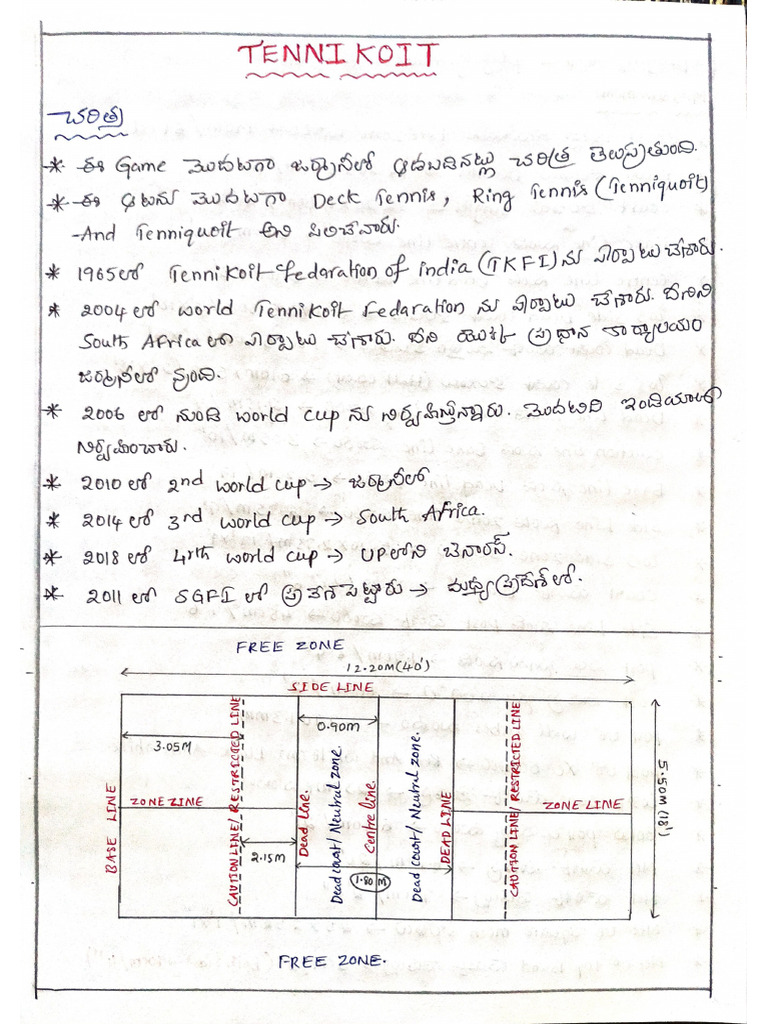 TENNIKOIT
చరిత్ర
* ఈ Game మొదటగా జర్మనీలో ఆడబడినట్లు చరిత్ర తెలుపుతుంది.
* ఈ ఆటను మొదటగా Deck Tennis, Ring Tennis (Tenniquoit)
And Tenniquoit అని పిలిచేవారు.
* 1965లో TenniKoit Fedaration of India (TKFI)ను ఏర్పాటు చేశారు.
* 2004 లో world TenniKoit Fedaration ను ఏర్పాటు చేశారు. దీనిని
South Africaలో ఏర్పాటు చేశారు. దీని యొక్క ప్రధాన కార్యాలయం
జర్మనీలో వుంది.
* 2006 లో నుండి world cup ను నిర్వహిస్తున్నారు. మొదటిది ఇండియాలో
నిర్వహించారు.
* 2010 లో 2nd world cup → జర్మనీలో
* 2014 లో 3rd world cup → South Africa.
* 2018 లో 4rth world cup → UPలోని బెనారస్.
* 2011 లో SGFI లో ప్రవేశపెట్టారు → మధ్యప్రదేశ్ లో.
FREE ZONE
12.20M(40')
SIDE LINE
0.90M
3.05M
BASE LINE
ZONE LINE
CAUTION LINE/ RESTRICTED LINE
2.15M
Dead line.
Dead court/ Neutral zone.
Centre line.
Dead court/ Neutral zone.
DEAD LINE
1.80 M
CAUTION LINE/ RESTRICTED LINE
ZONE LINE
5.50M (18')
FREE ZONE.